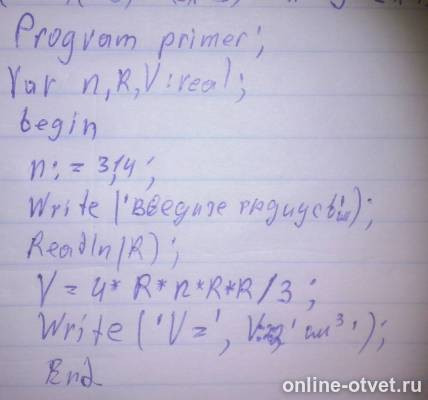 Program primer;
Var n, R, V : real;
begin
n: = 3,14;
Write ('введите радиус');
Readln(R);
V = 4* R* n* R*R/3;
Write ('V=', см³');
End
online-otvet.ru